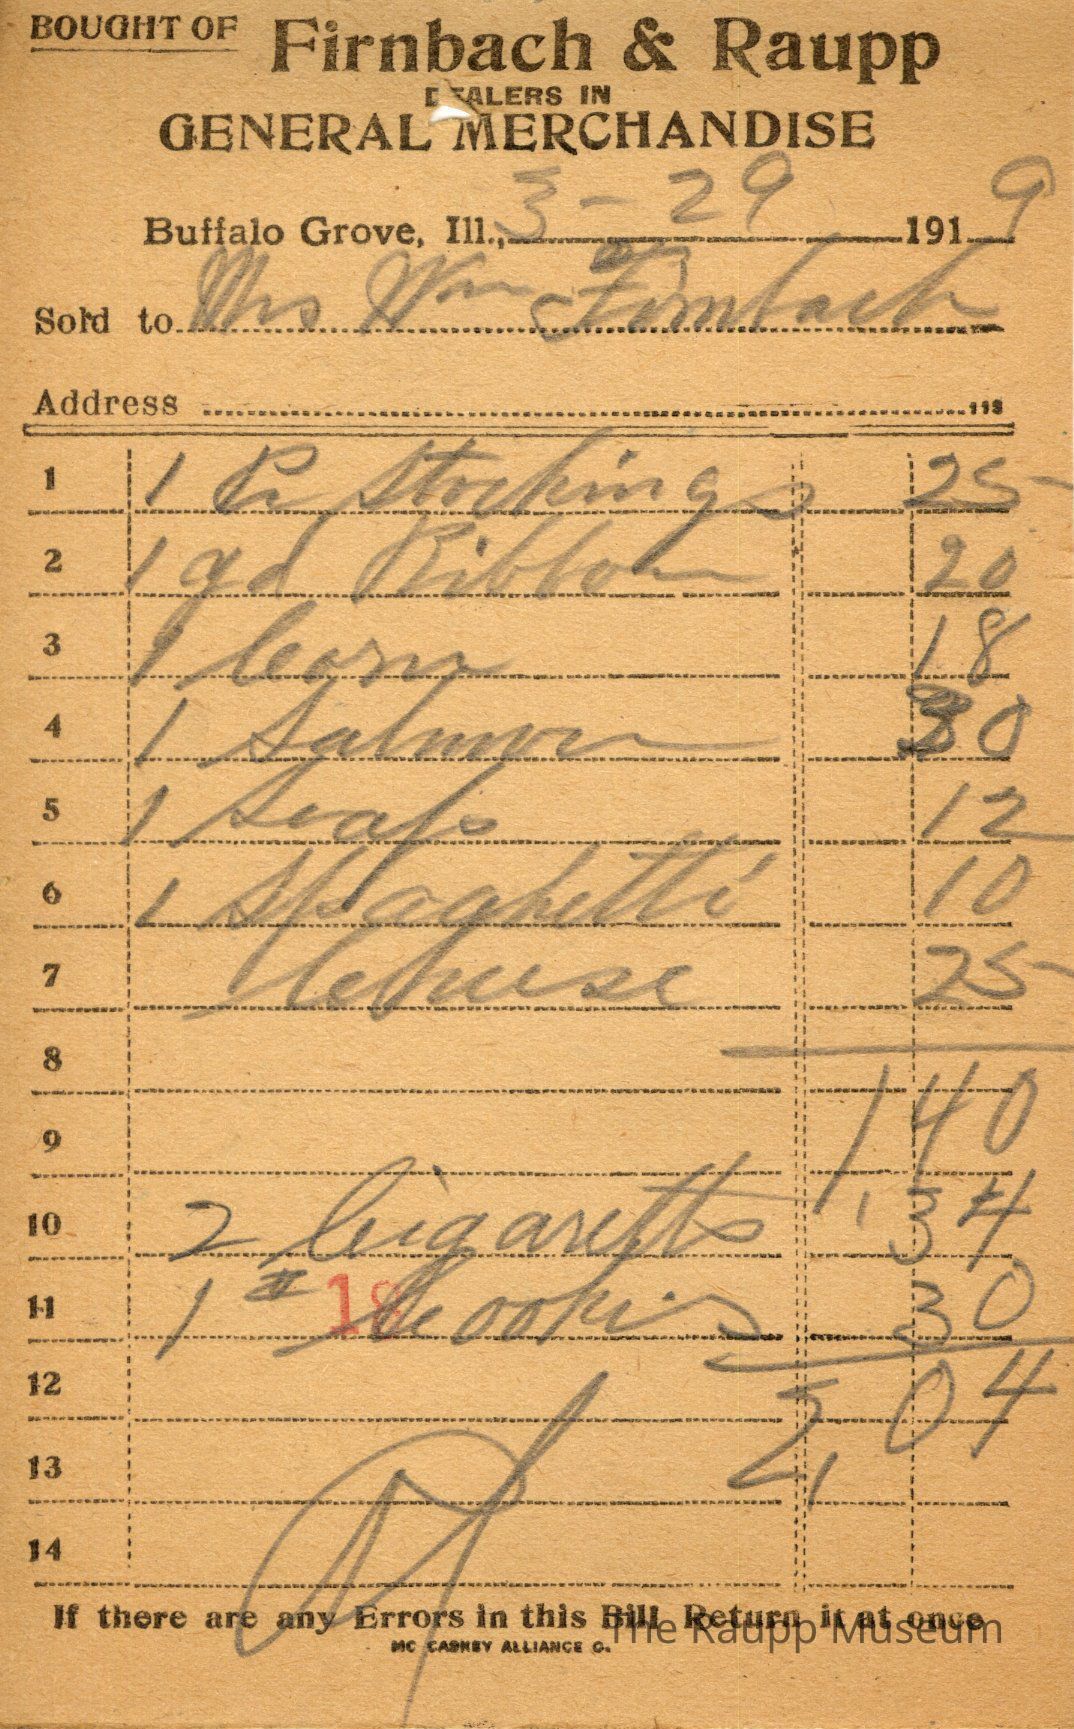 BOUGHT OF Firnbach & Raupp
DEALERS IN
GENERAL MERCHANDISE
Buffalo Grove, Ill., 3-29 1919
Sold to Mrs Wm Firnbach
Address
1 1 Pr Stockings 25
2 1 yd Ribbon 20
3 1 Corn 18
4 1 Salmon 30
5 1 Soap 12
6 1 Spaghetti 10
7 Cheese 25
8
9 140
10 2 Cigaretts 34
11 1 # Cookies 30
18
12 2,04
13
14
If there are any Errors in this Bill Return it at once
MC CASKEY ALLIANCE O.
The Raupp Museum